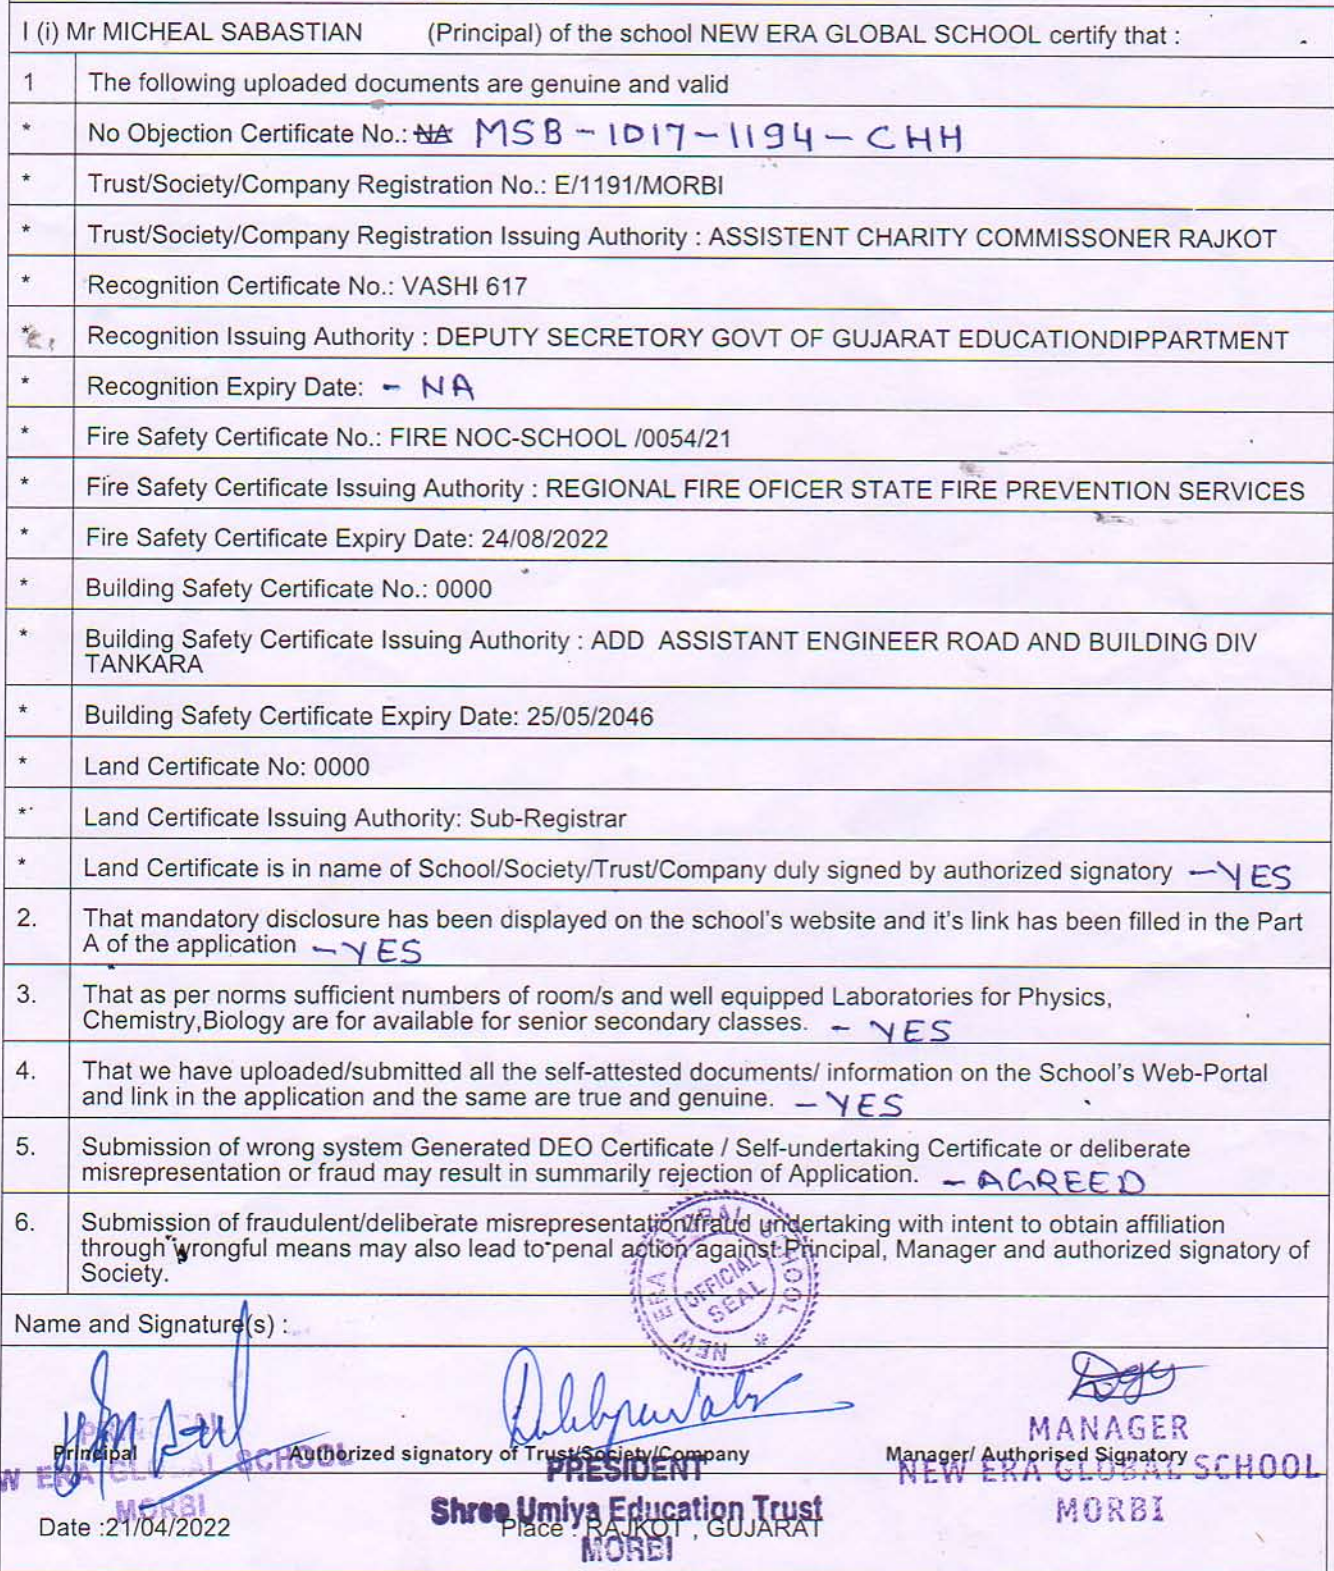 I (i) Mr MICHEAL SABASTIAN (Principal) of the school NEW ERA GLOBAL SCHOOL certify that :
1 The following uploaded documents are genuine and valid
* No Objection Certificate No.: NA MSB-1017-1194-CHH
* Trust/Society/Company Registration No.: E/1191/MORBI
* Trust/Society/Company Registration Issuing Authority : ASSISTENT CHARITY COMMISSONER RAJKOT
* Recognition Certificate No.: VASHI 617
* Recognition Issuing Authority : DEPUTY SECRETORY GOVT OF GUJARAT EDUCATIONDIPPARTMENT
* Recognition Expiry Date: - NA
* Fire Safety Certificate No.: FIRE NOC-SCHOOL /0054/21
* Fire Safety Certificate Issuing Authority : REGIONAL FIRE OFICER STATE FIRE PREVENTION SERVICES
* Fire Safety Certificate Expiry Date: 24/08/2022
* Building Safety Certificate No.: 0000
* Building Safety Certificate Issuing Authority : ADD ASSISTANT ENGINEER ROAD AND BUILDING DIV
TANKARA
* Building Safety Certificate Expiry Date: 25/05/2046
* Land Certificate No: 0000
* Land Certificate Issuing Authority: Sub-Registrar
* Land Certificate is in name of School/Society/Trust/Company duly signed by authorized signatory - YES
2. That mandatory disclosure has been displayed on the school's website and it's link has been filled in the Part
A of the application - YES
3. That as per norms sufficient numbers of room/s and well equipped Laboratories for Physics,
Chemistry,Biology are for available for senior secondary classes. - YES
4. That we have uploaded/submitted all the self-attested documents/ information on the School's Web-Portal
and link in the application and the same are true and genuine. - YES
5. Submission of wrong system Generated DEO Certificate / Self-undertaking Certificate or deliberate
misrepresentation or fraud may result in summarily rejection of Application. - AGREED
6. Submission of fraudulent/deliberate misrepresentation/fraud undertaking with intent to obtain affiliation
through wrongful means may also lead to penal action against Principal, Manager and authorized signatory of
Society.
NEW ERA GLOBAL SCHOOL *
OFFICIAL
SEAL
Name and Signature(s) :
PRINCIPAL
Principal Authorized signatory of Trust/Society/Company Manager/ Authorised Signatory
W ERA GLOBAL SCHOOL
MORBI
PRESIDENT
Shree Umiya Education Trust
MORBI
MANAGER
NEW ERA GLOBAL SCHOOL
MORBI
Date :21/04/2022 Place : RAJKOT , GUJARAT